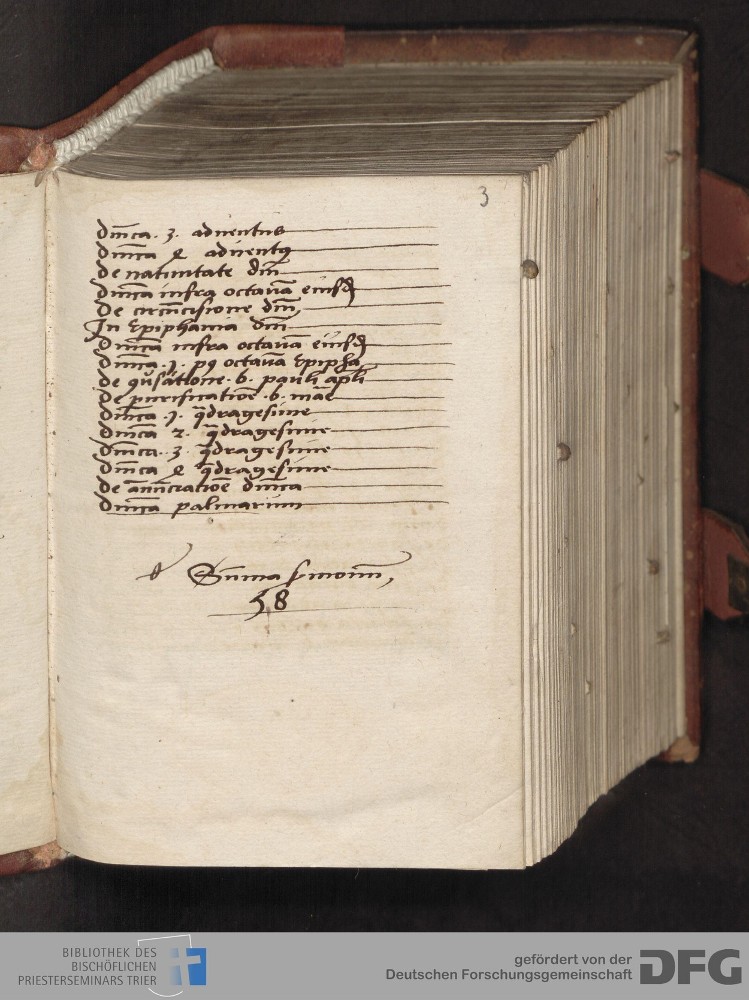 3
dnica . 3 . aduentus
dnica 4 aduentus
de natiuitate dni
dnica infra octauā eiusd
de circūcisione dni
In Epiphania dni
dnica infra octauā eiusd
dnica . 1 . pꝰ octauā Epipha
de ꝯuersatione . b . pauli apli
de purificatioē . b . mae
dnica . 1 . q̄dragesime
dnica 2 . q̄dragesime
dnica . 3 . q̄dragesime
dnica 4 q̄dragesime
de annūciatioē dnica
dnica palmarum
Sūma sermonū
58
BIBLIOTHEK DES
BISCHÖFLICHEN
PRIESTERSEMINARS TRIER
gefördert von der
Deutschen Forschungsgemeinschaft
DFG